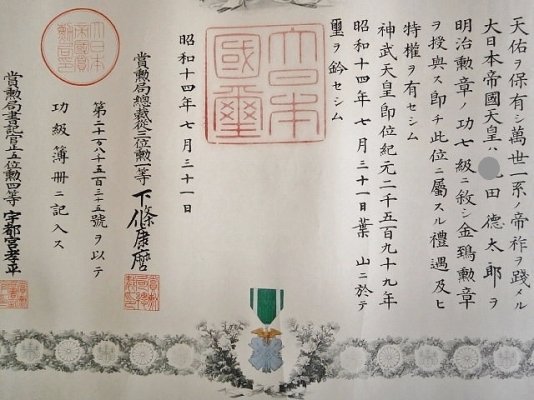 天佑ヲ保有シ萬世一系ノ帝祚ヲ踐メル
大日本帝國天皇ハ田德太郎ヲ
明治勲章ノ功七級ニ敍シ金鵄勲章
ヲ授與ス即チ此位ニ屬スル禮遇及ヒ
特權ヲ有セシム
神武天皇即位紀元二千五百九十九年
昭和十四年七月三十一日葉山ニ於テ
璽ヲ鈐セシム
大日本
國璽
昭和十四年七月三十一日
賞勲局總裁從三位勲一等下條康麿
第二十八万八千五百三十五號ヲ以テ
功級簿册ニ記入ス
賞勲局書記官正五位勲四等宇都宮孝平